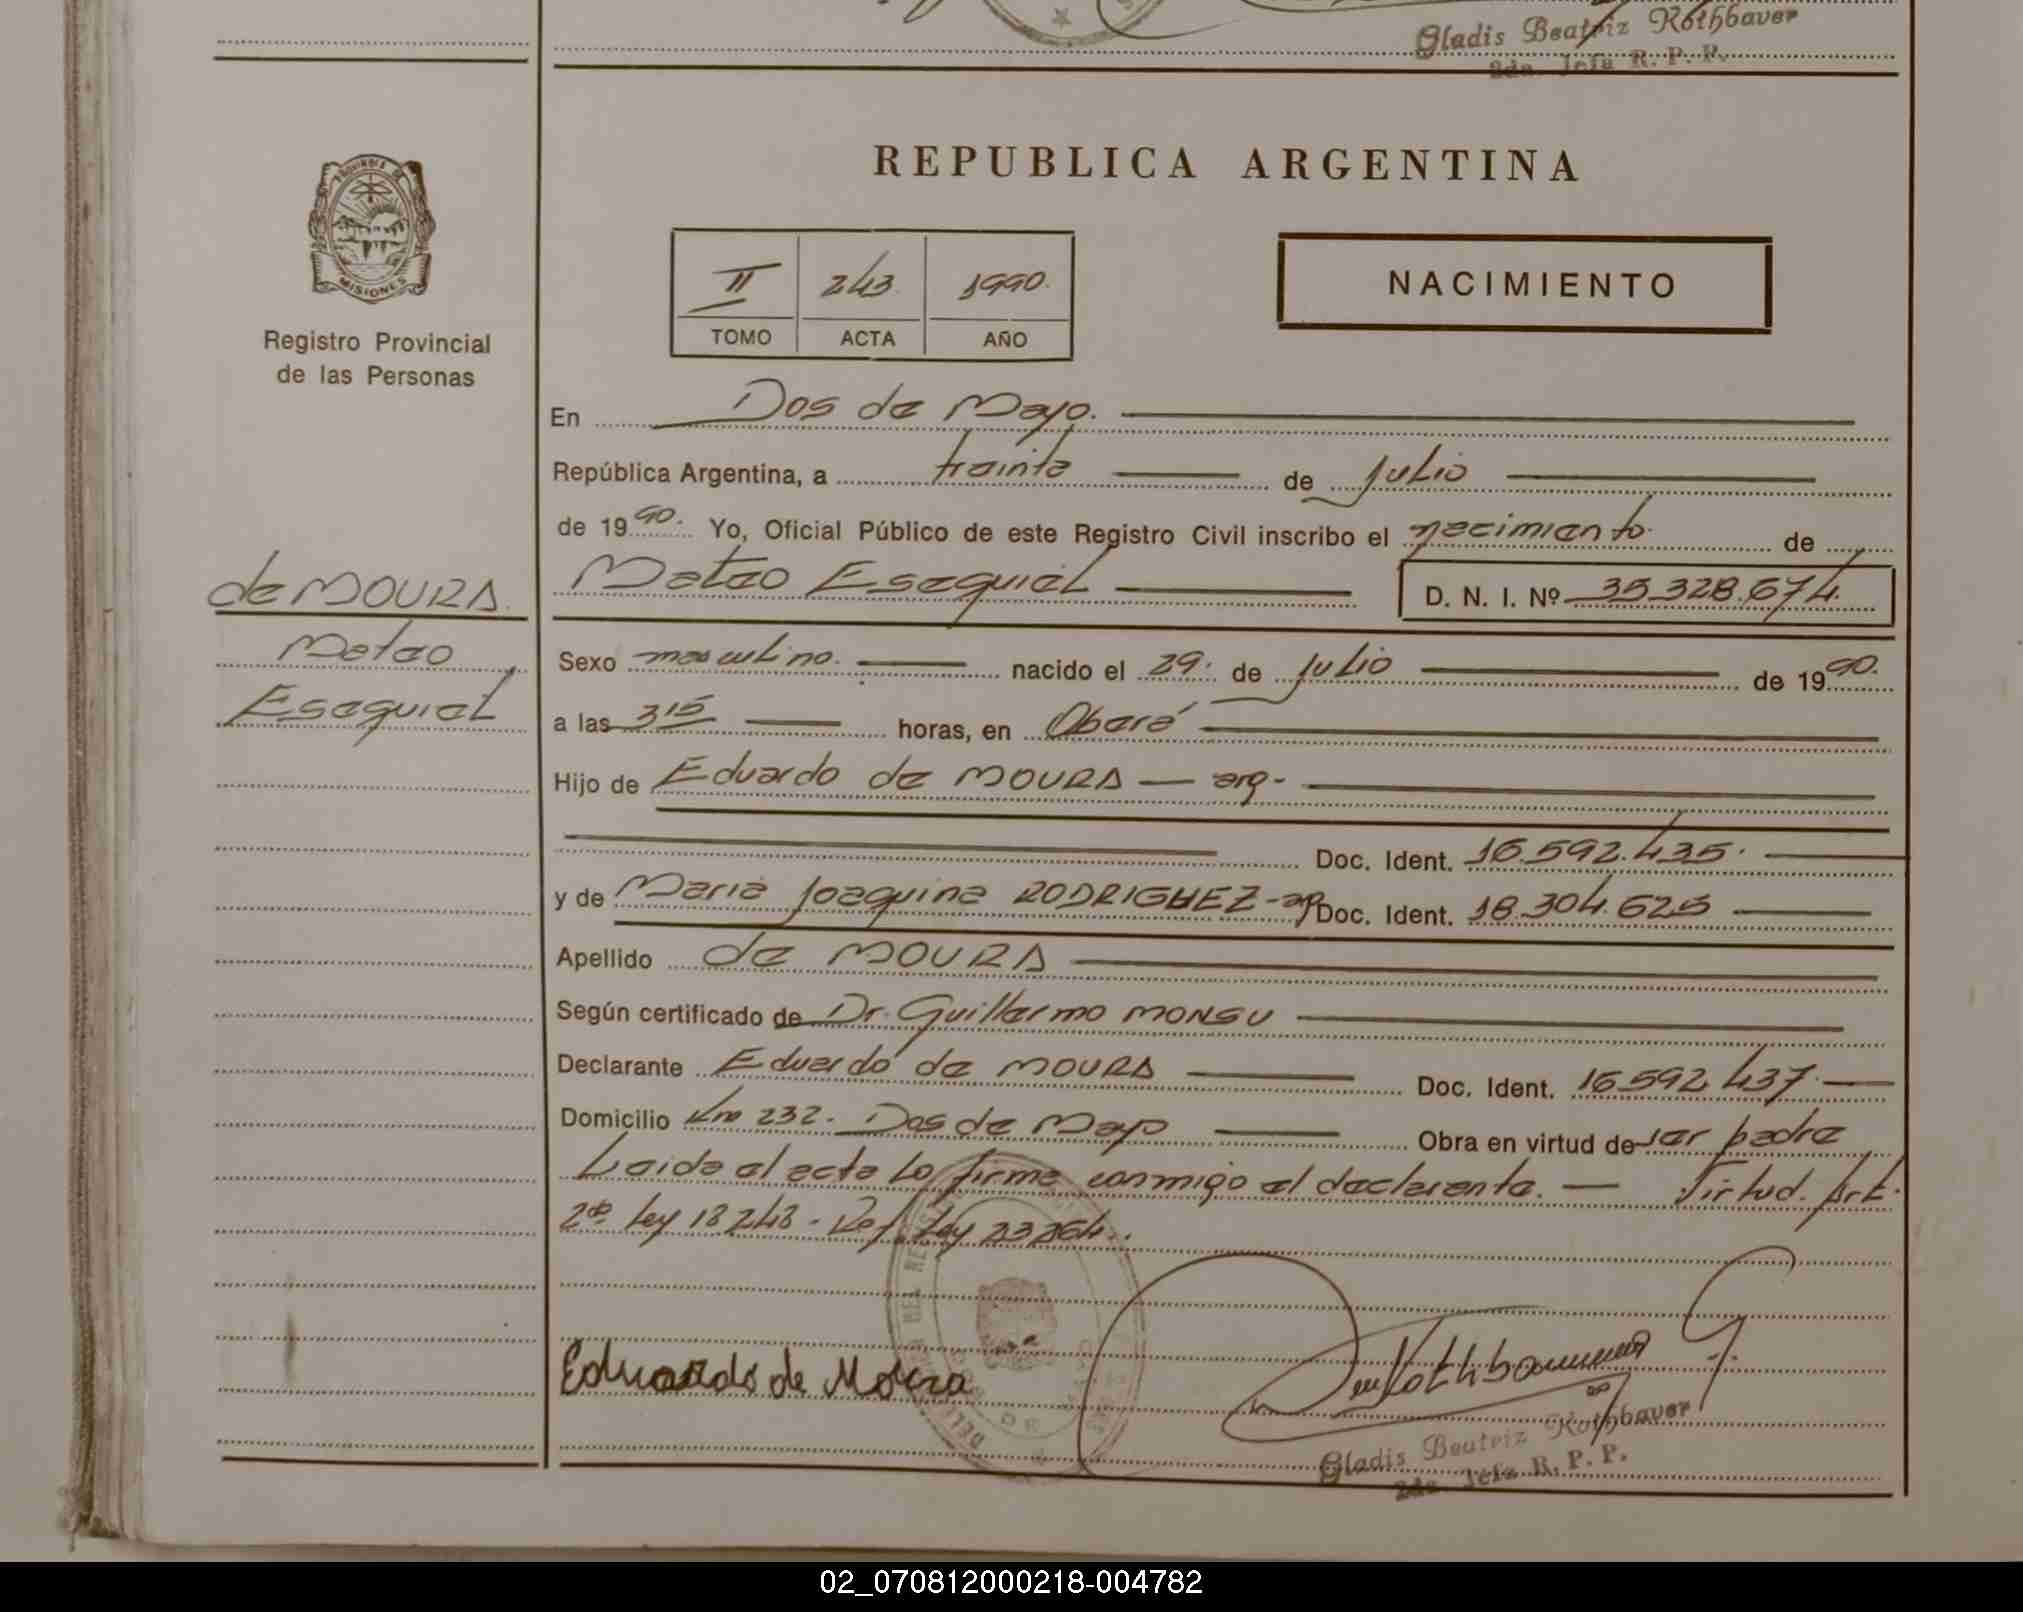 Gladis Beatriz Rothbaver
2da. Jefa R. P. P.
PROVINCIA DE
MISIONES
Registro Provincial
de las Personas
REPUBLICA ARGENTINA
II 243 1990.
TOMO ACTA AÑO
NACIMIENTO
En Dos de Mayo.
República Argentina, a treinta de Julio
de 1990. Yo, Oficial Público de este Registro Civil inscribo el nacimiento de
Mateo Esequiel D. N. I. Nº 35.328.674.
de MOURA.
Mateo
Esequiel
Sexo masculino. nacido el 29. de Julio de 1990.
a las 3 15 horas, en Oberá
Hijo de Eduardo de MOURA — arg-
Doc. Ident. 16.592.435.
y de Maria Joaquina RODRIGUEZ - arg Doc. Ident. 18.304.625
Apellido de MOURA
Según certificado de Dr. Guillermo MONSU
Declarante Eduardo de MOURA Doc. Ident. 16.592.437.
Domicilio Km 232. Dos de Mayo Obra en virtud de ser padre
Leida el acta lo firma conmigo el declarante. — Virtud. Art.
2do Ley 18248 - Ley 23264.
Eduardo de Moura
Gladis Beatriz Rothbaver
2da Jefa R. P. P.
02_070812000218-004782